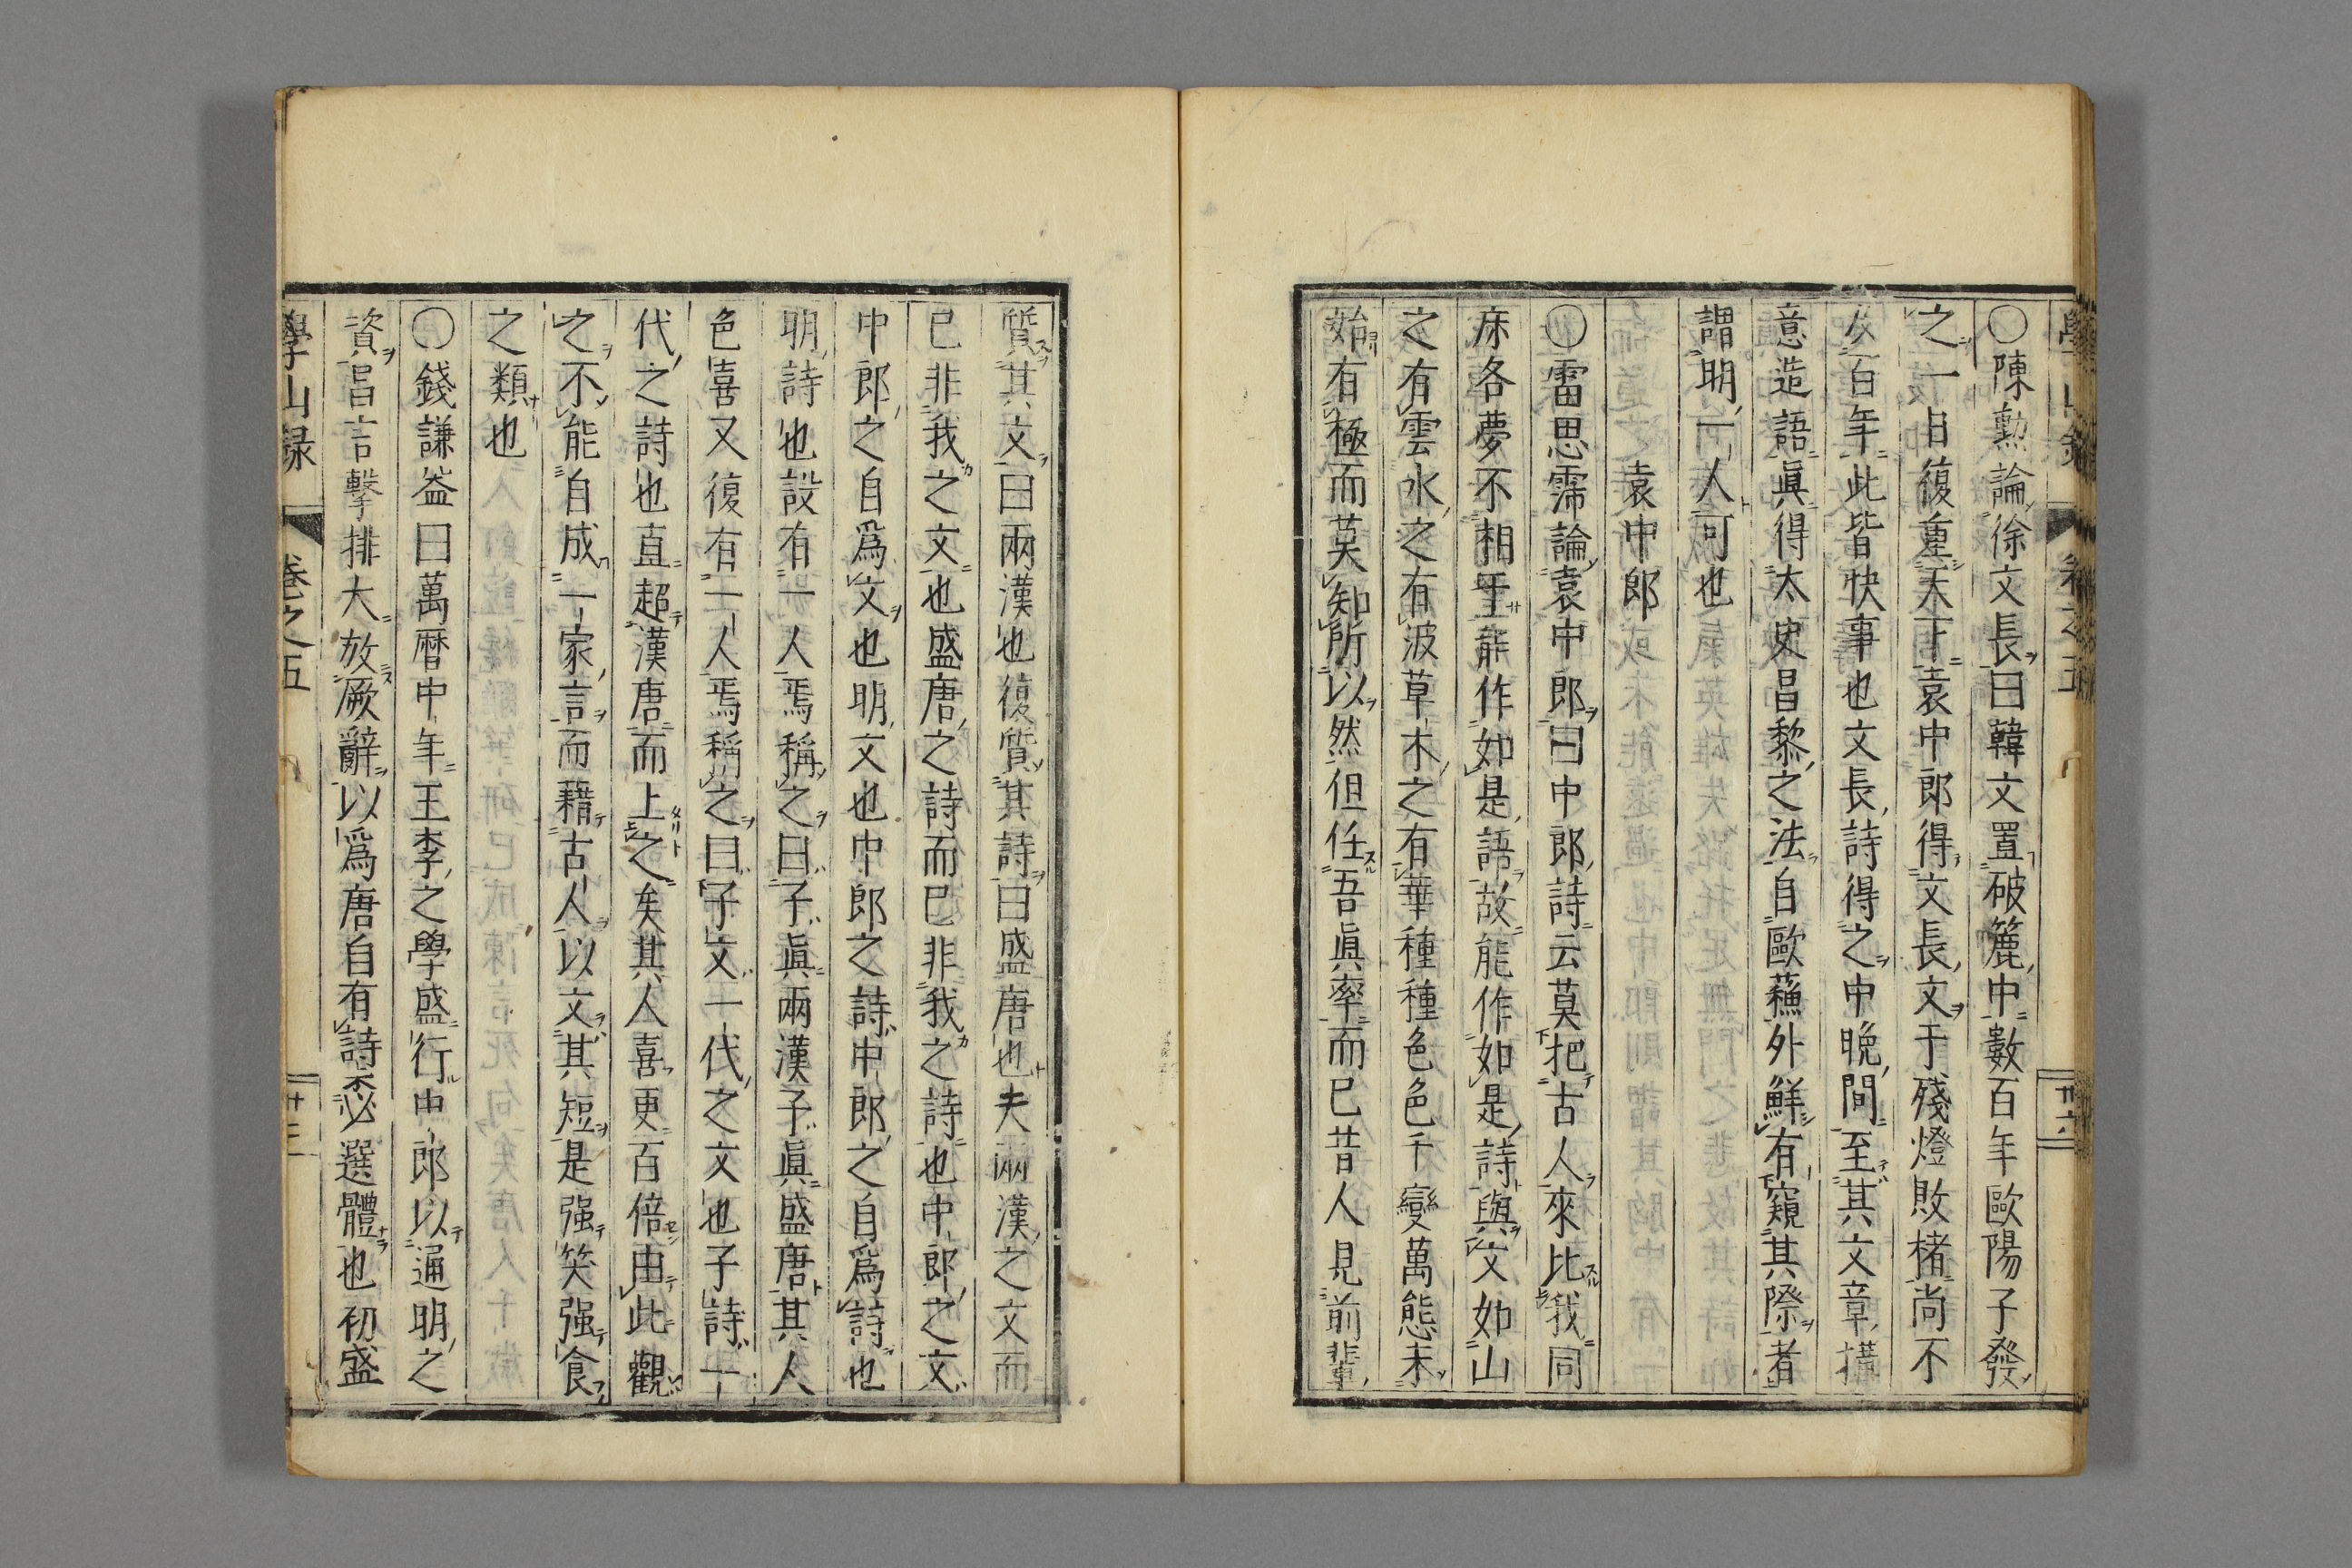 ○陳勲論徐文長曰韓文置破簏中數百年歐陽子發
之一日復重天下袁中郎得文長文于殘燈敗楮尚不
及百年此皆快事也文長詩得之中晩間至其文章
意造語眞得太史昌黎之法自歐蘓外鮮有窺其際者
謂明一人可也
袁中郎
○雷思霈論袁中郎曰中郎詩云莫把古人來比我同
床各夢不相干能作如是語故能作如是詩與文如山
之有雲水之有波草木之有華種種色色千變萬態未
始有極而莫知所以然但任吾眞率而已昔人見前輩
質其文曰兩漢也復質其詩曰盛唐也夫兩漢之文而
已非我之文也盛唐之詩而已非我之詩也中郎之文
中郎之自爲文也明文也中郎之詩中郎之自爲詩也
明詩也設有一人焉稱之曰子眞兩漢子眞盛唐其人
色喜又復有一人焉稱之曰子文一代之文也子詩一
代之詩也直超漢唐而上之矣其人喜更百倍由此觀
之不能自成一家言而藉古人以文其短是强笑强食
之類也
○錢謙益曰萬曆中年王李之學盛行中郎以通明之
資昌言擊排大放厥辭以爲唐自有詩不必選體也初盛
學山録
卷之五